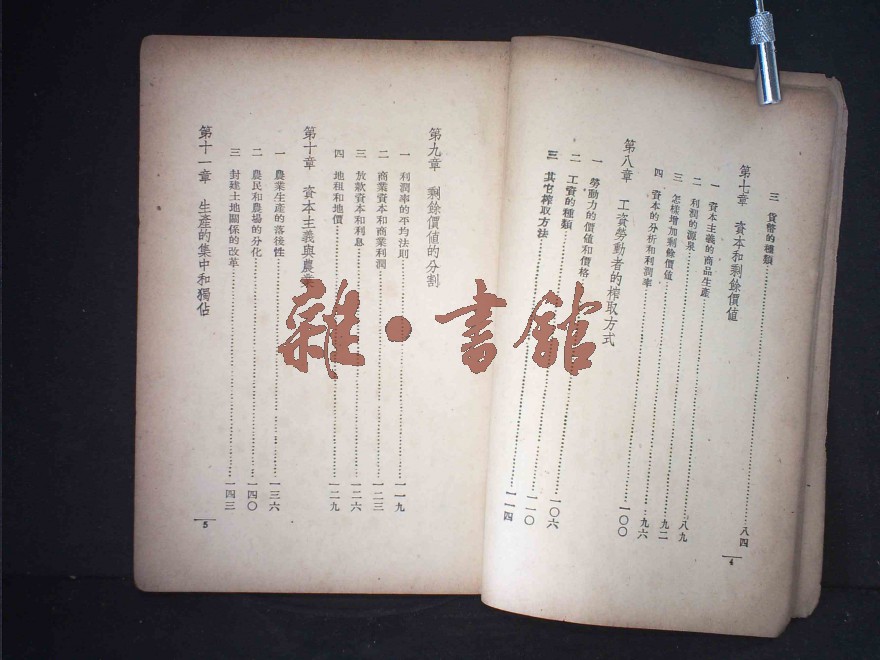 三 貨幣的種類……八四
第七章 資本和剩餘價值
一 資本主義的商品生產……八九
二 利潤的源泉……九二
三 怎樣增加剩餘價值……九六
四 資本的分析和利潤率……一〇〇
第八章 工資勞動者的榨取方式
一 勞動力的價值和價格……一〇六
二 工資的種類……一一〇
三 其它榨取方法……一一四
4
第九章 剩餘價值的分割
一 利潤率的平均法則……一一九
二 商業資本和商業利潤……一二三
三 放款資本和利息……一二六
四 地租和地價……一二九
第十章 資本主義與農業
一 農業生產的落後性……一三六
二 農民和農場的分化……一四〇
三 封建土地關係的改革……一四三
第十一章 生產的集中和獨佔
5
雜·書館